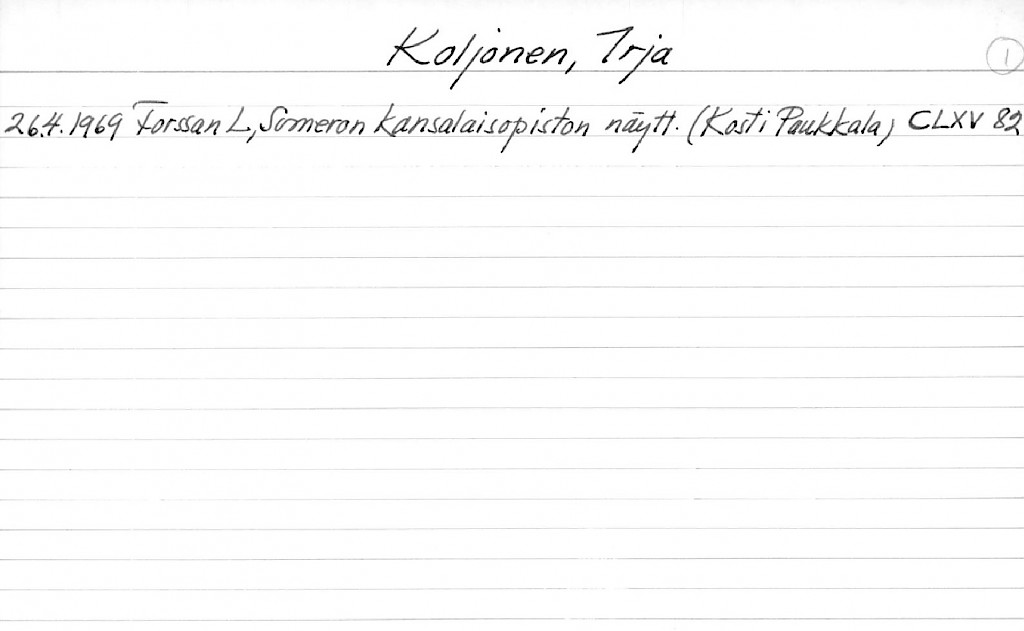 Koljonen, Irja
1
26.4.1969 Forssan L, Someron kansalaisopiston näytt. (Kosti Paukkala) CLXV 82